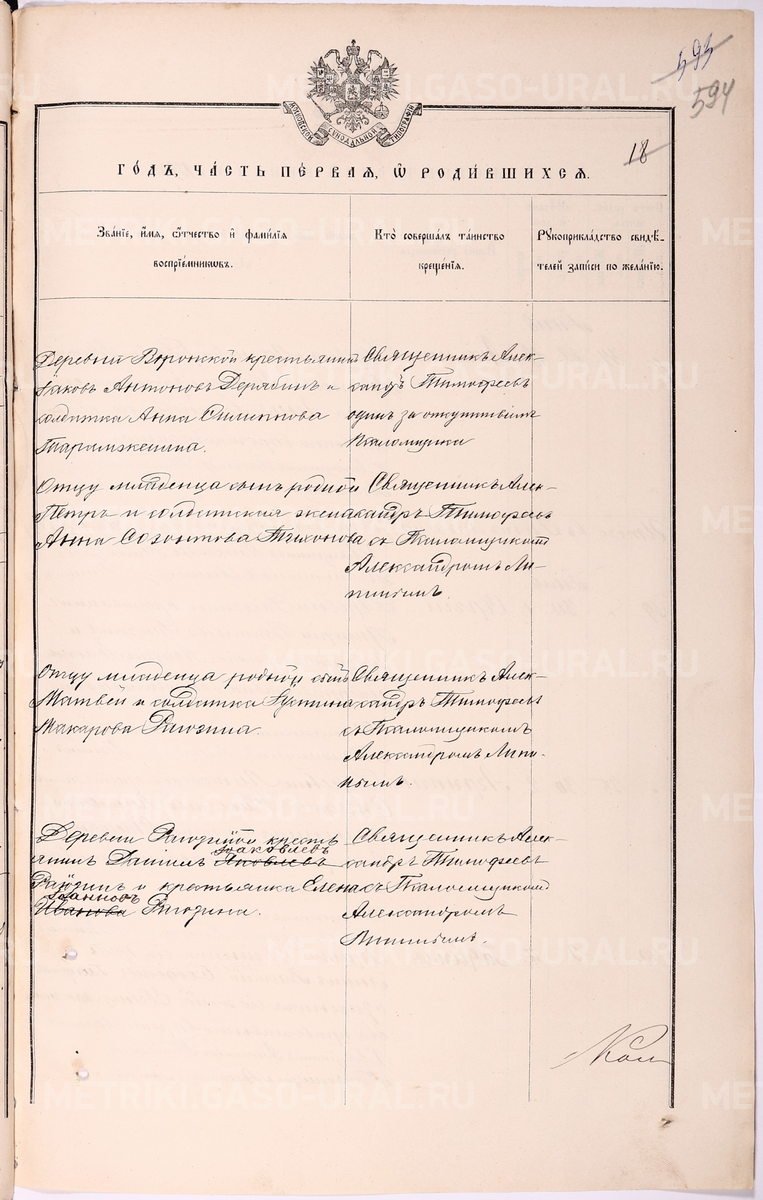 594
18
МОСКОВСКОЙ СѴНОДАЛЬНОЙ ТИПОГРАФІИ
ГО́ДЪ, ЧА́СТЬ ПЕ́РВАЯ, Ѡ РОДИ́ВШИХСЯ.
Зва́ніе, и́мя, ѻ҆́тчество и҆ фами́лія
воспріе́мникѡвъ.
Кто̀ соверша́лъ та́инство
креще́нія.
Рꙋкоприкла́дство свидѣ́-
телей за́писи по жела́нію.
Деревни крестьянинъ
Іаковъ Антоновъ Дерябинъ и
солдатка Анна
Священникъ Алек-
сандръ Тимофеевъ
одинъ за отсутствіемъ
Псаломщика
Отцу младенца сынъ родной
Петръ и солдатская жена
Анна Созонтова Тихонова
Священникъ Алек-
сандръ Тимофеевъ
съ Псаломщикомъ
Александромъ Ли-
пинымъ.
Отцу младенца родной сынъ
Матвей и солдатка Іустина
Макарова Рагозина.
Священникъ Алек-
сандръ Тимофеевъ
съ Псаломщикомъ
Александромъ Липи-
нымъ.
Деревни кресть
янинъ Даніилъ Яковлевъ Іаковлевъ
и крестьянка Елена
Иванова Іоаннов
Священникъ Алек-
сандръ Тимофеевъ
съ Псаломщикомъ
Александромъ
Липинымъ.
METRIKI.GASO-URAL.RU